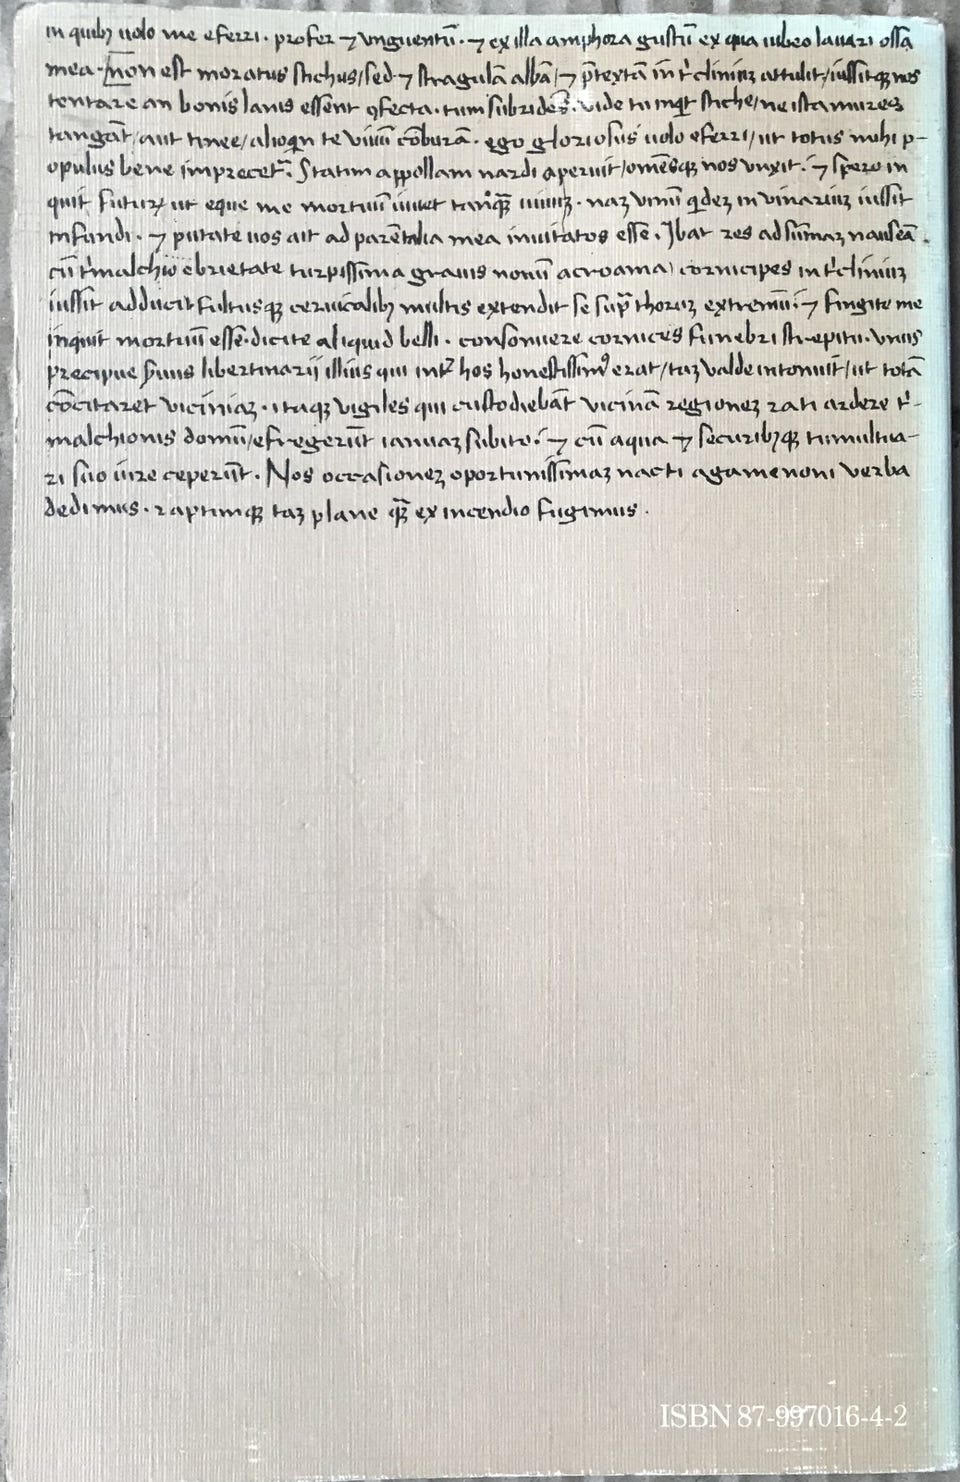 in quibꝫ uolo me eferri. profer ⁊ vnguentū. ⁊ ex illa amphora gustū ex qua iubeo lauari ossa
mea. non est moratus stichus/sed ⁊ stragulā albā/⁊ p̄textā in tͥcliniuꝫ attulit/iussitqꝫ nos
tentare an bonis lanis essent ꝯfecta. tum subridēs. vide tu inqͥt stiche/ne ista mures
tangāt/aut tinee/alioqͥn te viuū cōburā. ego gloriosus uolo eferri/ut totus mihi p-
opulus bene imprecet᷑. Statim appollam nardi aperuit/omēsqꝫ nos vnxit. ⁊ spero in
quit futurꝝ ut eque me mortuū iuuet tanqꝫ̄ uiuuꝫ. naꝫ vinū qͥdeꝫ in vinariuꝫ iussit
infundi. ⁊ putate uos ait ad parētalia mea inuitatos esse. Ibat res ad sūmaꝫ nauseā.
cū tͥmalchio ebrietate turpissima grauis nouū acroama cornicipes in tͥcliniuꝫ
iussit adduci fultusqꝫ ceruicalibꝫ multis extendit se supᷓ thoruꝫ extremū. ⁊ fingite me
inquit mortuū esse. dicite aliquid belli. consonuere cornices funebri strepitu. vnus
precipue s̄uus libertinarij illius qui int᷑ hos honestissimꝰ erat/taꝫ valde intonuit/ut totā
cōcitaret viciniaꝫ. itaqꝫ vigiles qui custodiebāt vicinā regioneꝫ rati ardere tͥ-
malchionis domū/efregerūt ianuaꝫ subito. ⁊ cū aqua ⁊ securibꝫqꝫ tumultua-
ri suo iure ceperūt. Nos occasioneꝫ oportunissimaꝫ nacti agamenoni verba
dedimus. raptimqꝫ taꝫ plane qꝫ̄ ex incendio fugimus.
ISBN 87-997016-4-2